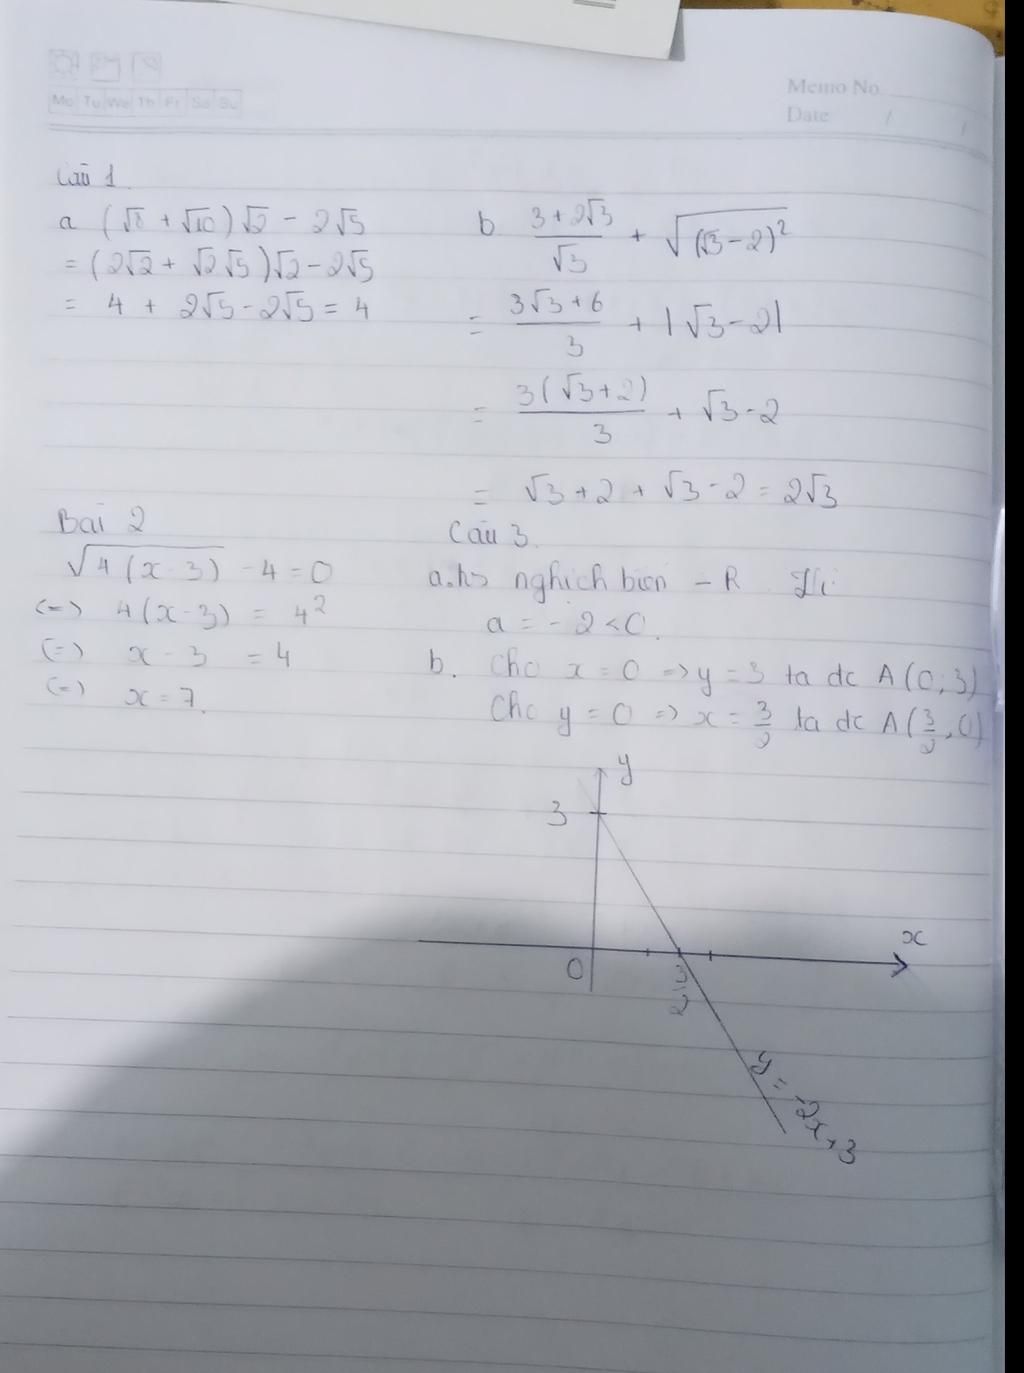 Mo Tu We Th Fr Sa Su
Memo No.
Date / /
Câu 1
a (√8 + √10)√2 - 2√5
= (2√2 + √2√5)√2 - 2√5
= 4 + 2√5 - 2√5 = 4
b (3 + 2√3)/√3 + √((√3 - 2)²)
= (3√3 + 6)/3 + |√3 - 2|
= 3(√3 + 2)/3 + √3 - 2
= √3 + 2 + √3 - 2 = 2√3
Bài 2
√(4(x - 3)) - 4 = 0
(=) 4(x - 3) = 4²
(=) x - 3 = 4
(=) x = 7.
Câu 3.
a. hs nghịch biến - R
a = - 2 < 0.
b. Cho x = 0 => y = 3 ta dc A(0; 3)
Cho y = 0 => x = 3/2 ta dc A(3/2, 0)
y
3
x
0
3/2
y = -2x + 3